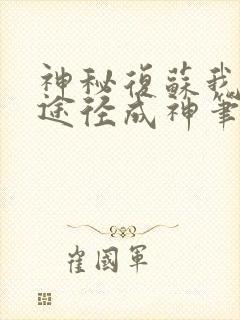 神秘復蘇我
途径成神筆
崔國軍